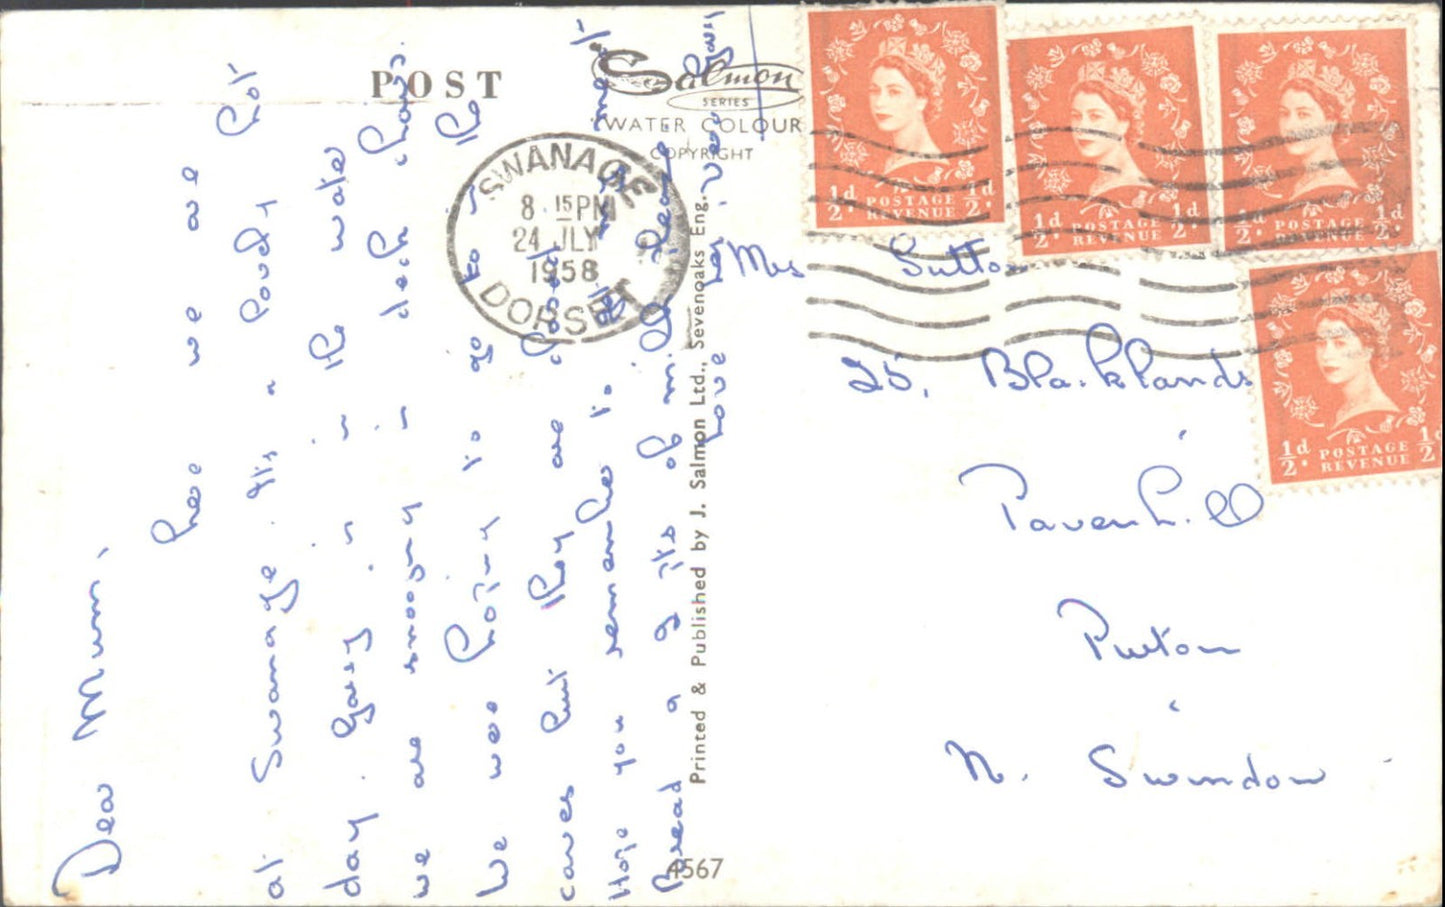 POST
Salmon
SERIES
WATER COLOUR
COPYRIGHT
SWANAGE
8 15 PM
24 JLY
1958
DORSET
1/2d. POSTAGE REVENUE 1/2d.
1/2d. POSTAGE REVENUE 1/2d.
1/2d. POSTAGE REVENUE 1/2d.
1/2d. POSTAGE REVENUE 1/2
Dear Mum,
here we are
at Swanage. its a lovely hot
day. Gary is in the water
we are snoozing in deck chairs.
We were hoping to go to the
caves but they are
Hope you remember to
Bread &
love
Printed & Published by J. Salmon Ltd., Sevenoaks Eng.
4567
Mrs Sutton
25, Blacklands
Pavenhill
Purton
N. Swindon